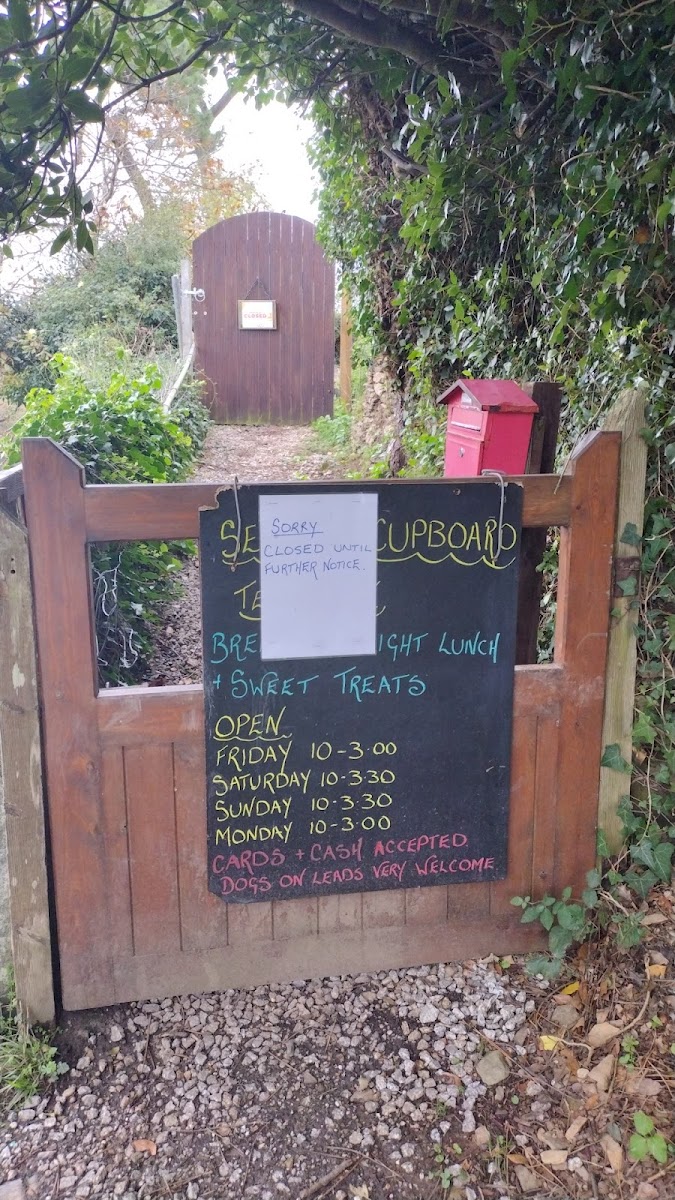 CLOSED
SORRY
CLOSED UNTIL
FURTHER NOTICE.
CUPBOARD
LIGHT LUNCH
+ SWEET TREATS
OPEN
FRIDAY 10-3.00
SATURDAY 10-3.30
SUNDAY 10-3.30
MONDAY 10-3.00
CARDS + CASH ACCEPTED.
DOGS ON LEADS VERY WELCOME